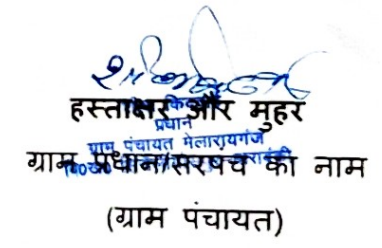 हस्ताक्षर और मुहर
प्रधान
ग्राम पंचायत मेलारायगंज
ग्राम प्रधान/सरपंच का नाम
(ग्राम पंचायत)